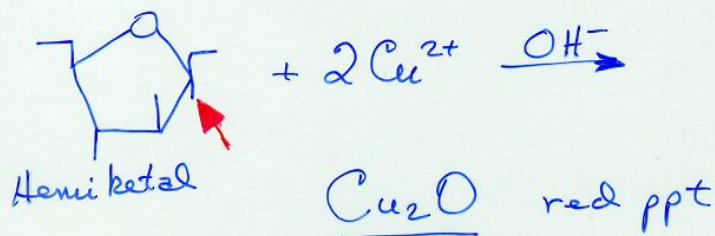 O
+ 2Cu²⁺ OH⁻
Hemiketal
Cu₂O red ppt